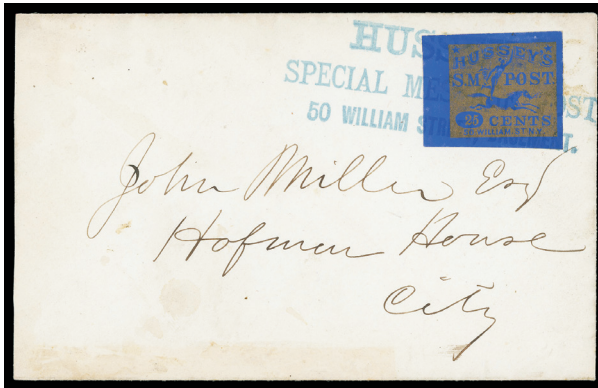 HUSS
SPECIAL MES OST
50 WILLIAM STR
HUSSEY'S
S.M. POST
25 CENTS
50 WILLIAM ST. N.Y.
John Miller Esq
Hofman House
City